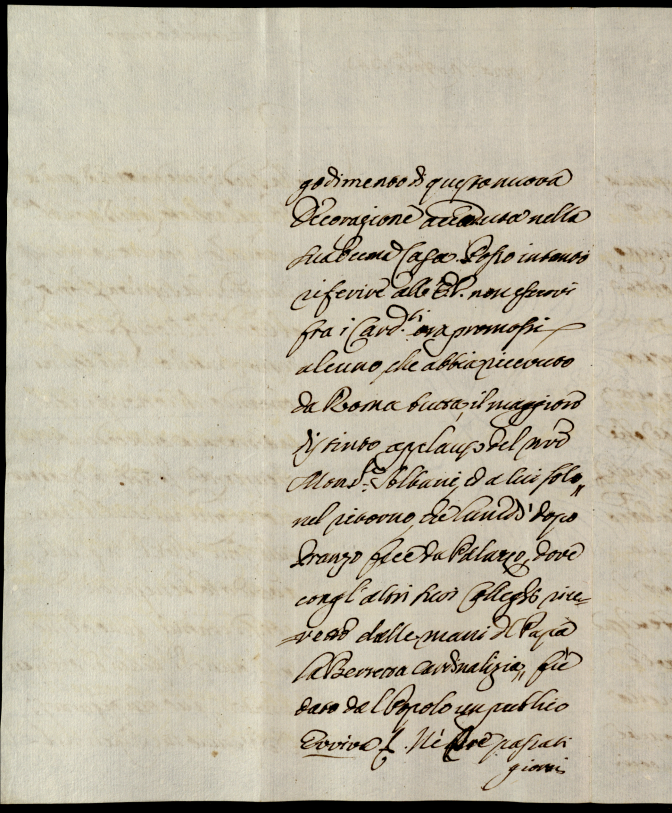 godimento di questa nuova
Decorazione accaduta nella
sua Ecc.ma Casa. Posso intanto
riferire all' E.V. non esservi
fra i Card.li ora promossi
alcuno, che abbia ricevuto
da Roma tutta, il maggiore
distinto applauso del nro
Mons.re Albani, et a lui solo
nel ritorno, che Lunedì dopo
Pranzo fece da Palazzo, dove
con gl'altri suoi Colleghi rice-
vette dalle mani del Papa
la Berretta Cardinalizia, fù
dato dal Popolo un publico
Evviva. Ne passati
giorni